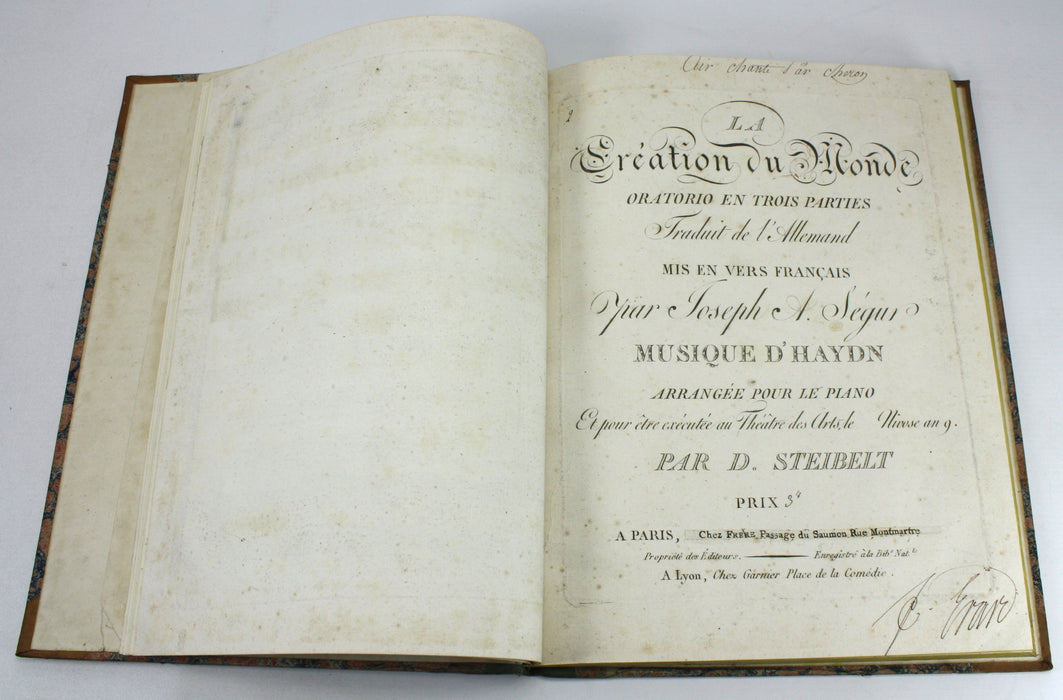 Air chanté Par Cheron
2
LA
Création du Monde
ORATORIO EN TROIS PARTIES
Traduit de l'Allemand
MIS EN VERS FRANÇAIS
par Joseph A. Ségur
MUSIQUE D'HAYDN
ARRANGÉE POUR LE PIANO
Et pour être exécutée au Théâtre des Arts, le Nivose an 9.
PAR D. STEIBELT
PRIX 3#
A PARIS, Chez FRERE Passage du Saumon Rue Montmartre
Propriété des Editeurs. Enregistré à la Bib. Nat.le
A Lyon, Chez Garnier Place de la Comédie.
Erard